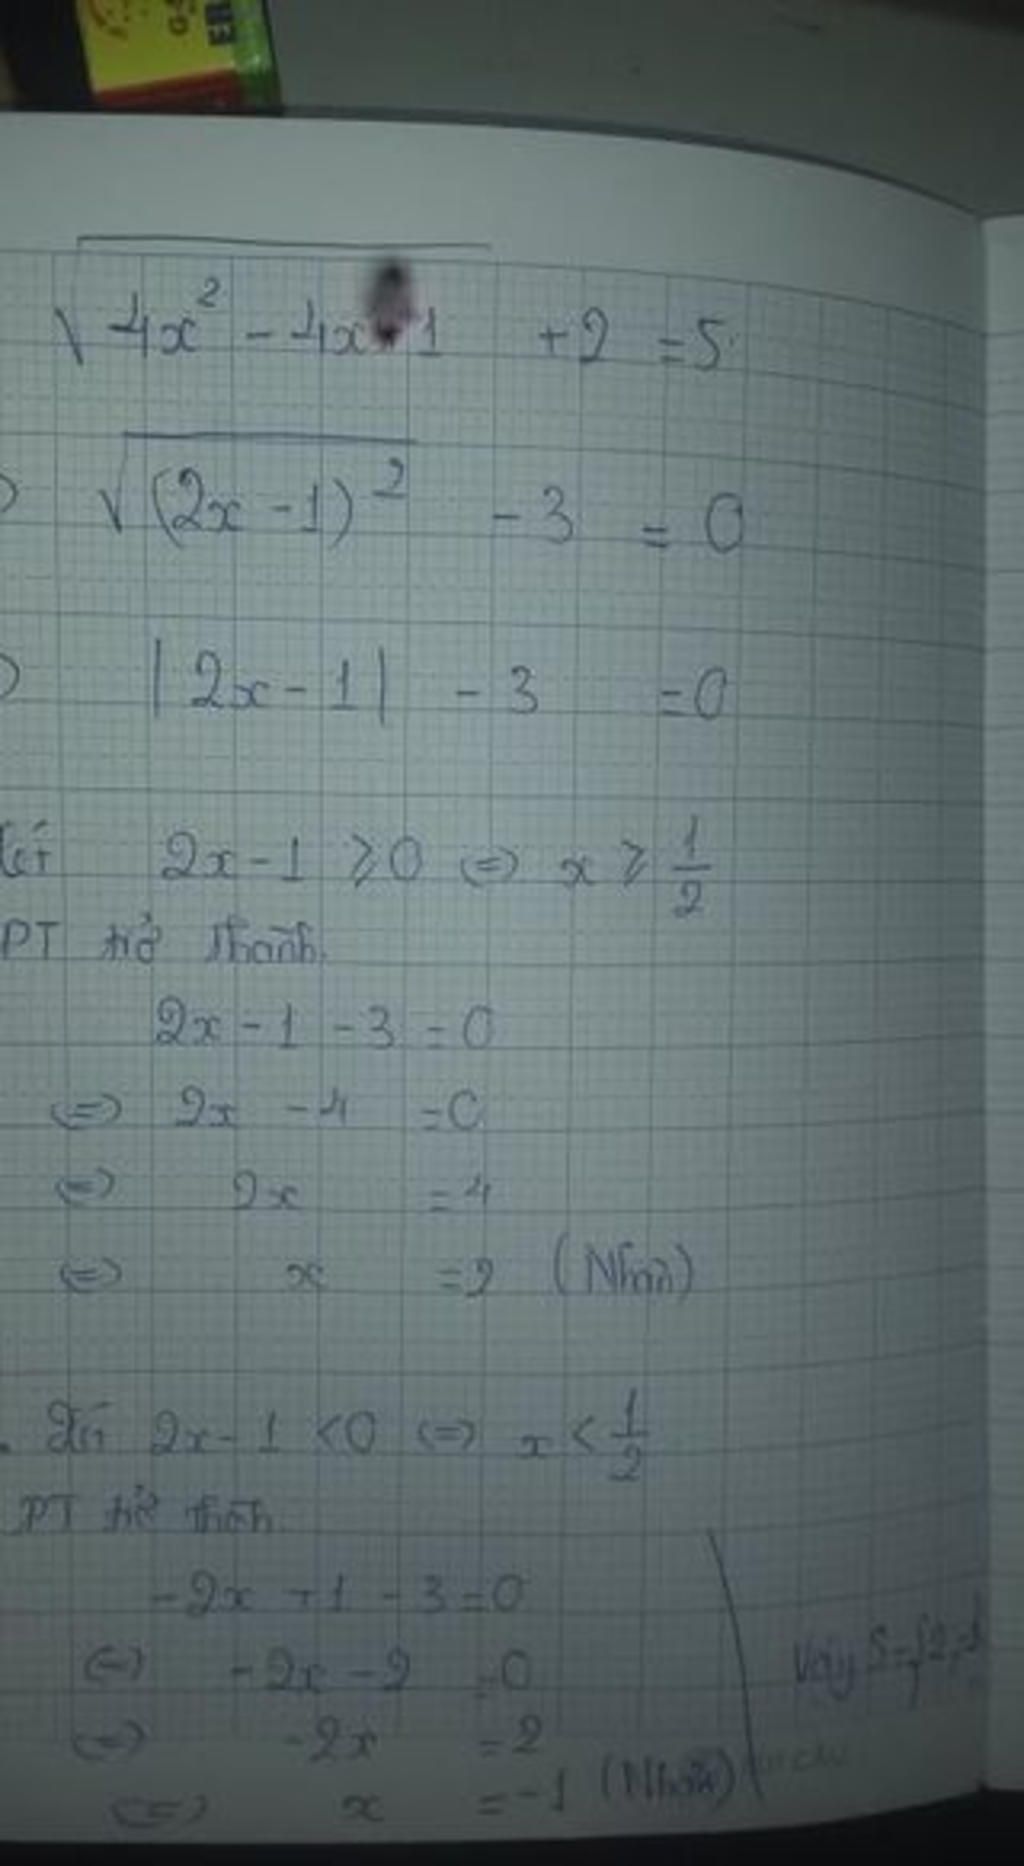 ER
√4x² - 4x + 1 + 2 = 5
√(2x - 1)² - 3 = 0
|2x - 1| - 3 = 0
2x - 1 ⩾ 0 ⇔ x ⩾ 1/2
PT trở thành
2x - 1 - 3 = 0
⇔ 2x - 4 = 0
⇔ 2x = 4
⇔ x = 2 (Nhận)
2x - 1 < 0 ⇔ x < 1/2
PT trở thành
-2x + 1 - 3 = 0
⇔ -2x - 2 = 0
⇔ -2x = 2
⇔ x = -1 (Nhận)
Vậy S = {2; -1